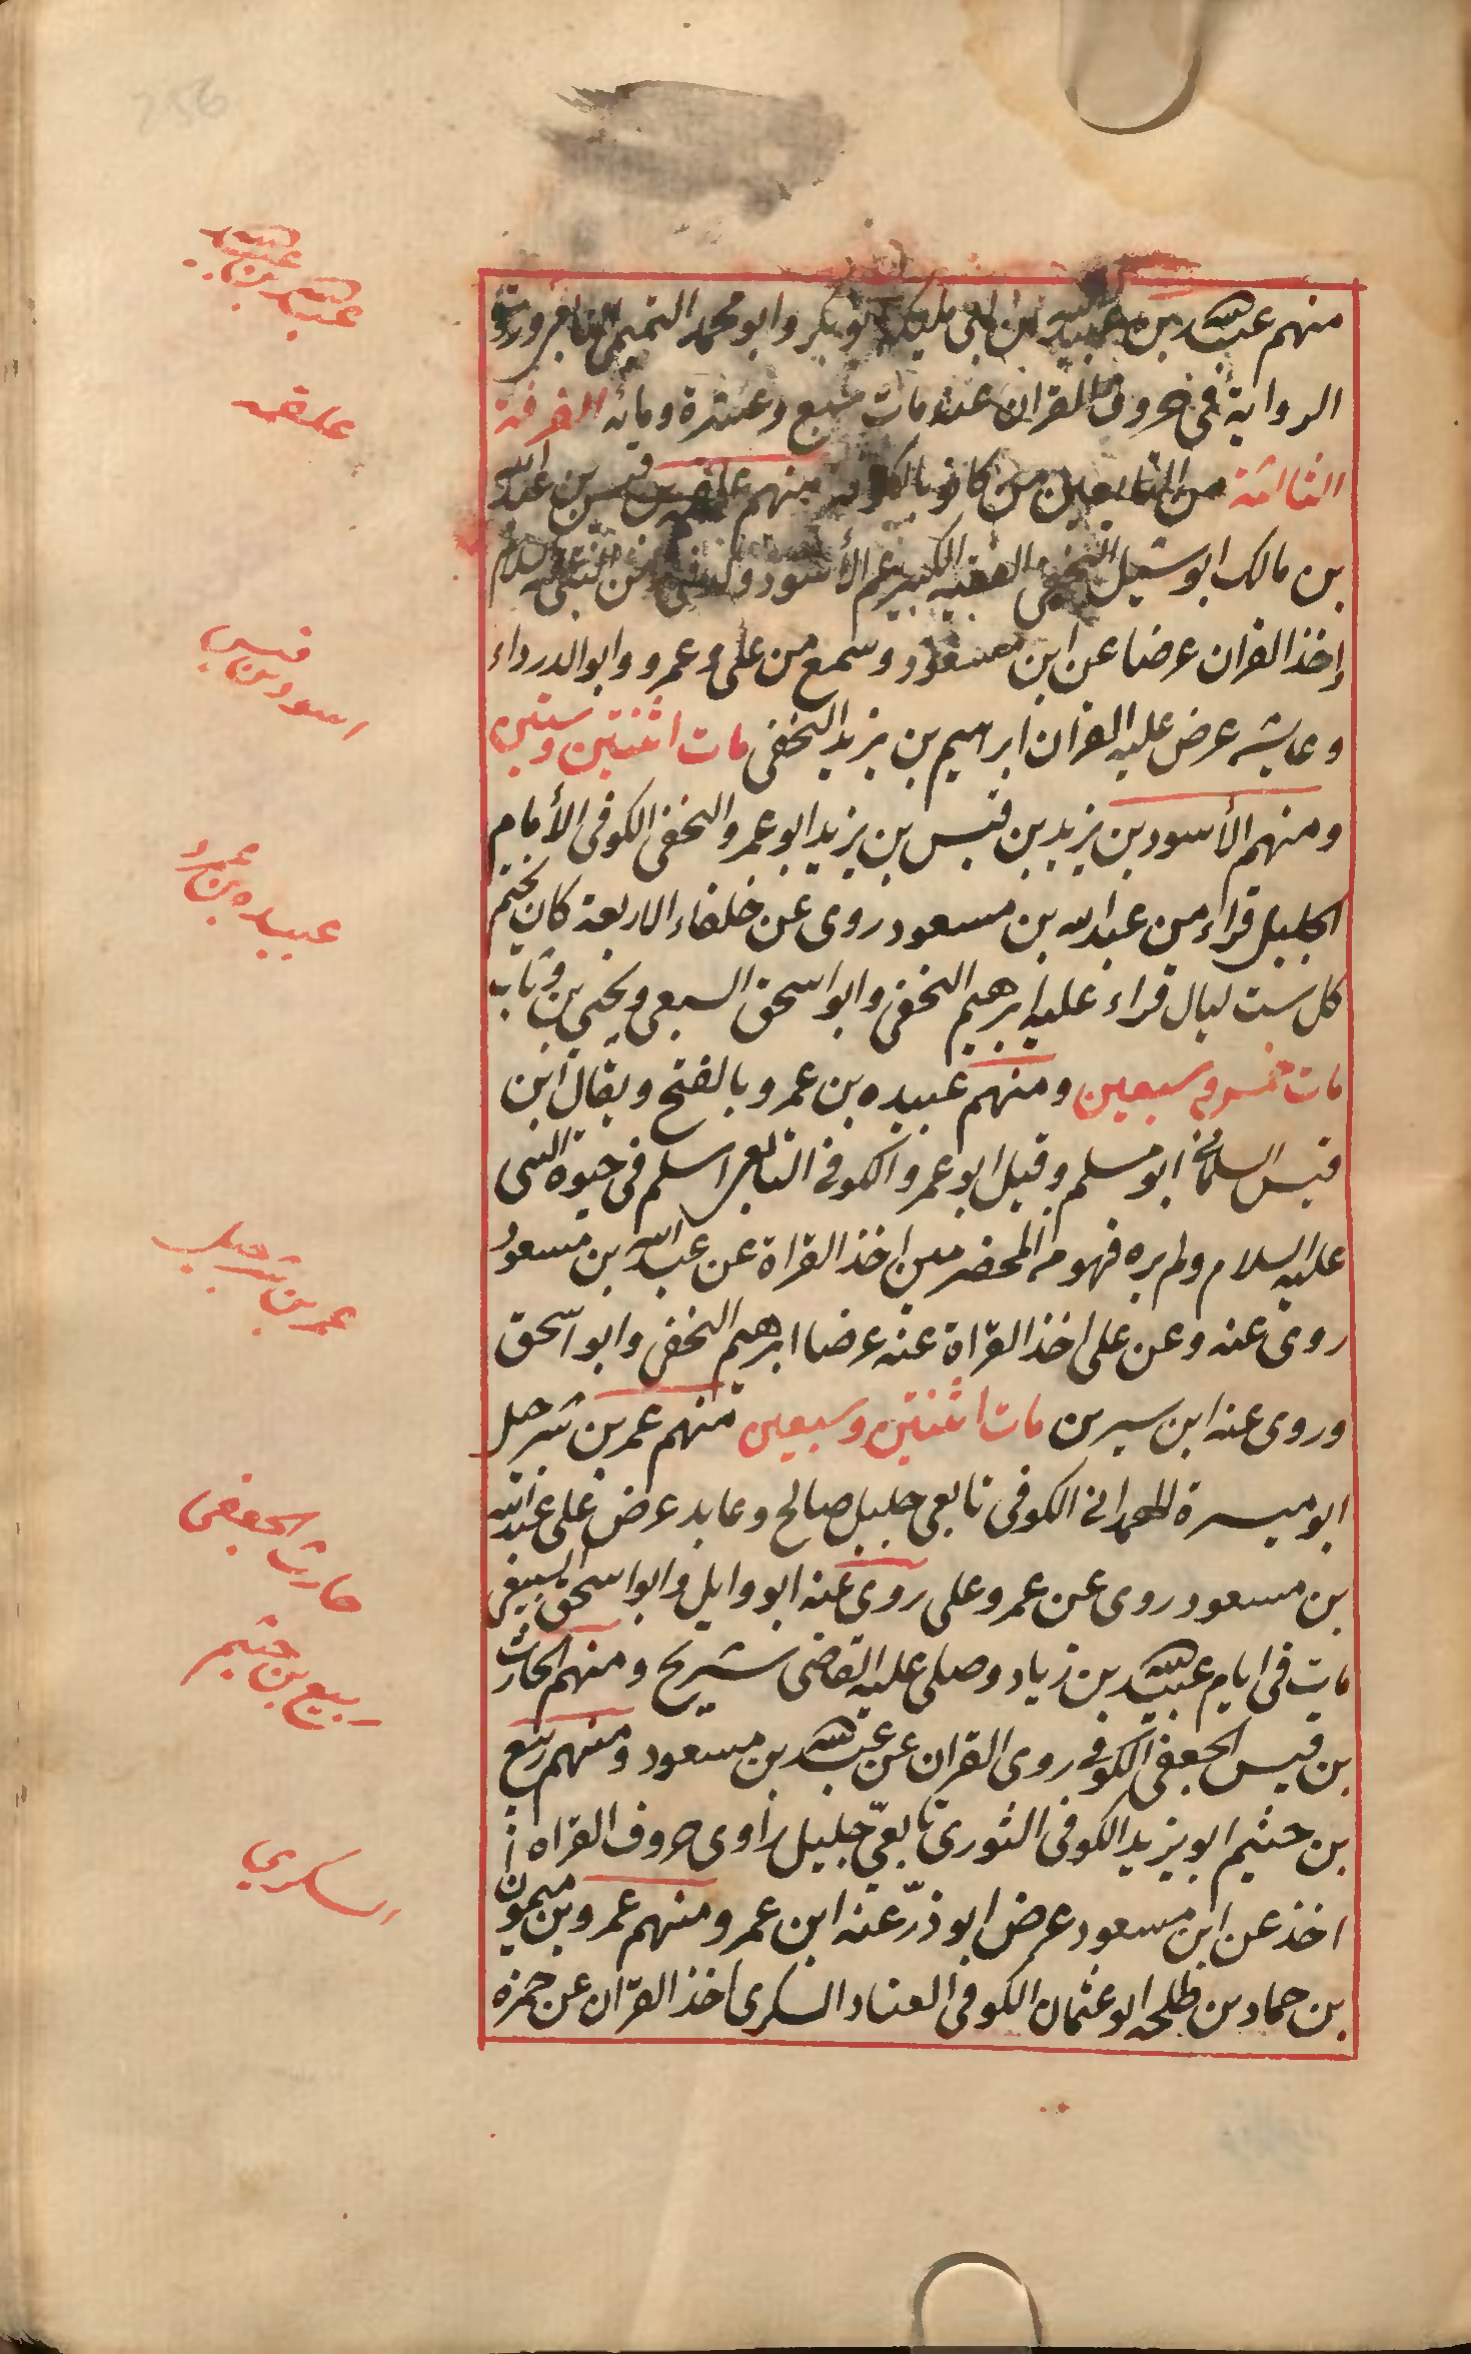 منهم عبدالله بن عبيدالله ابن ابى مليكه ابو بكر وابو محمد التميمى التابعى وردت
الرواية فى حروف القران عنه مات سبع وعشرة ومايه الفرقة
الثالثة من التابعين من كانو بالكوفه منهم علقمه بن قيس بن عبدالله
بن مالك ابو شبل النخعى الفقيه الكبير عم الأسود ولد فى زمن النبى عليه السلام
اخذ القران عرضا عن ابن مسعود وسمع من على وعمر و وابو الدرداء
وعايشه عرض عليه القران ابراهيم بن يزيد النخفى مات اثنتين وستين
ومنهم الأسود بن يزيد بن قيس بن يزيد ابو عمرو النخفى الكوفى الأمام
الجليل قراء من عبدالله بن مسعود روى عن خلفاء الاربعة كان يختم
كل ست ليال قراء عليه ابرهيم النخفى وابو اسحق السبعى ويحيى بن وثاب
مات خمس وسبعين ومنهم عبيده بن عمرو بالفتح ويقال ابن
قيس السلمانى ابو مسلم وقيل ابو عمرو الكوفى التابعى اسلم فى حيوة النبى
عليه السلام ولم يره فهو من المخضرمين اخذ القراة عن عبدالله بن مسعود
روى عنه وعن على اخذ القراة عنه عرضا ابرهيم النخفى وابو اسحق
وروى عنه ابن سيرين مات اثنتين وسبعين منهم عمر بن شرحيل
ابو ميسرة الهمدانى الكوفى تابعى جليل صالح وعابد عرض على عبدالله
بن مسعود روى عن عمر وعلى روى عنه ابو وايل وابو اسحق السبيعى
مات فى ايام عبيدالله بن زياد وصلى عليه القاضى شريح ومنهم الحارث
بن قيس الجعفى الكوفى روى القران عن عبدالله بن مسعود ومنهم ربيع
بن خثيم ابو يزيد الكوفى الثورى تابعىّ جليل راوى حروف القراه
اخذ عن ابن مسعود عرض ابو ذرّعنه ابن عمر ومنهم عمرو بن ميمون
بن حماد بن طلحه ابو عثمان الكوفى العناد السكرى اخذ القرّان عن حمزه
عبدالله بن عبيدالله
علقمه
اسود بن قيس
عبيده بن عمرو
عمر بن شرحيل
حارث الجعفى
ربيع بن خثيم
السكري